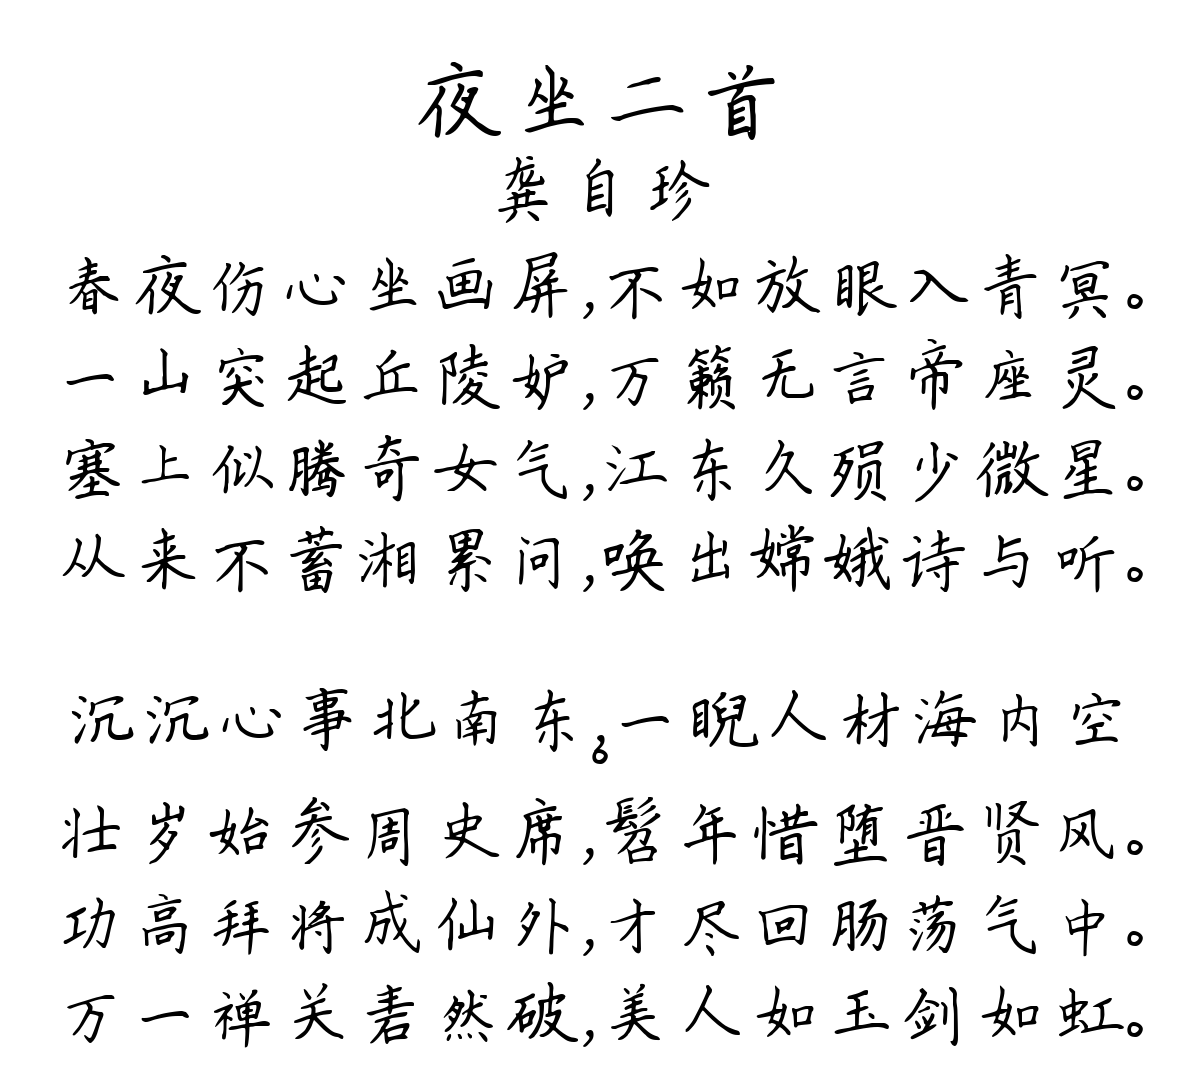 夜坐二首
龚自珍
春夜伤心坐画屏,不如放眼入青冥。
一山突起丘陵妒,万籁无言帝座灵。
塞上似腾奇女气,江东久殒少微星。
从来不蓄湘累问,唤出嫦娥诗与听。
沉沉心事北南东,一睨人材海内空。
壮岁始参周史席,髫年惜堕晋贤风。
功高拜将成仙外,才尽回肠荡气中。
万一禅关砉然破,美人如玉剑如虹。